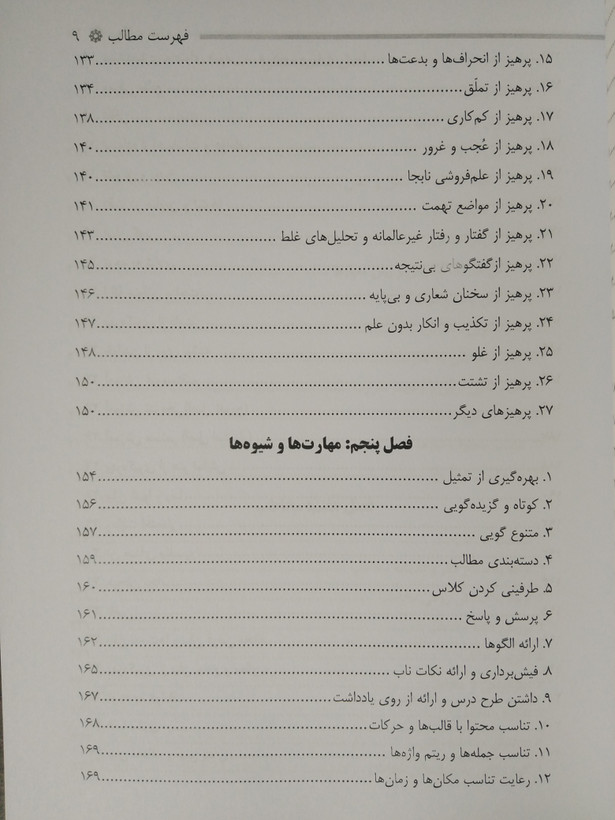 فهرست مطالب ۹
۱۵. پرهیز از انحراف‌ها و بدعت‌ها ۱۳۳
۱۶. پرهیز از تملّق ۱۳۴
۱۷. پرهیز از کم‌کاری ۱۳۸
۱۸. پرهیز از عُجب و غرور ۱۴۰
۱۹. پرهیز از علم‌فروشی نابجا ۱۴۰
۲۰. پرهیز از مواضع تهمت ۱۴۱
۲۱. پرهیز از گفتار و رفتار غیرعالمانه و تحلیل‌های غلط ۱۴۳
۲۲. پرهیز ازگفتگوهای بی‌نتیجه ۱۴۵
۲۳. پرهیز از سخنان شعاری و بی‌پایه ۱۴۶
۲۴. پرهیز از تکذیب و انکار بدون علم ۱۴۷
۲۵. پرهیز از غلو ۱۴۸
۲۶. پرهیز از تشتت ۱۵۰
۲۷. پرهیزهای دیگر ۱۵۰
فصل پنجم: مهارت‌ها و شیوه‌ها
۱. بهره‌گیری از تمثیل ۱۵۴
۲. کوتاه و گزیده‌گویی ۱۵۶
۳. متنوع گویی ۱۵۷
۴. دسته‌بندی مطالب ۱۵۹
۵. طرفینی کردن کلاس ۱۶۰
۶. پرسش و پاسخ ۱۶۱
۷. ارائه الگوها ۱۶۲
۸. فیش‌برداری و ارائه نکات ناب ۱۶۵
۹. داشتن طرح درس و ارائه از روی یادداشت ۱۶۷
۱۰. تناسب محتوا با قالب‌ها و حرکات ۱۶۸
۱۱. تناسب جمله‌ها و ریتم واژه‌ها ۱۶۹
۱۲. رعایت تناسب مکان‌ها و زمان‌ها ۱۶۹